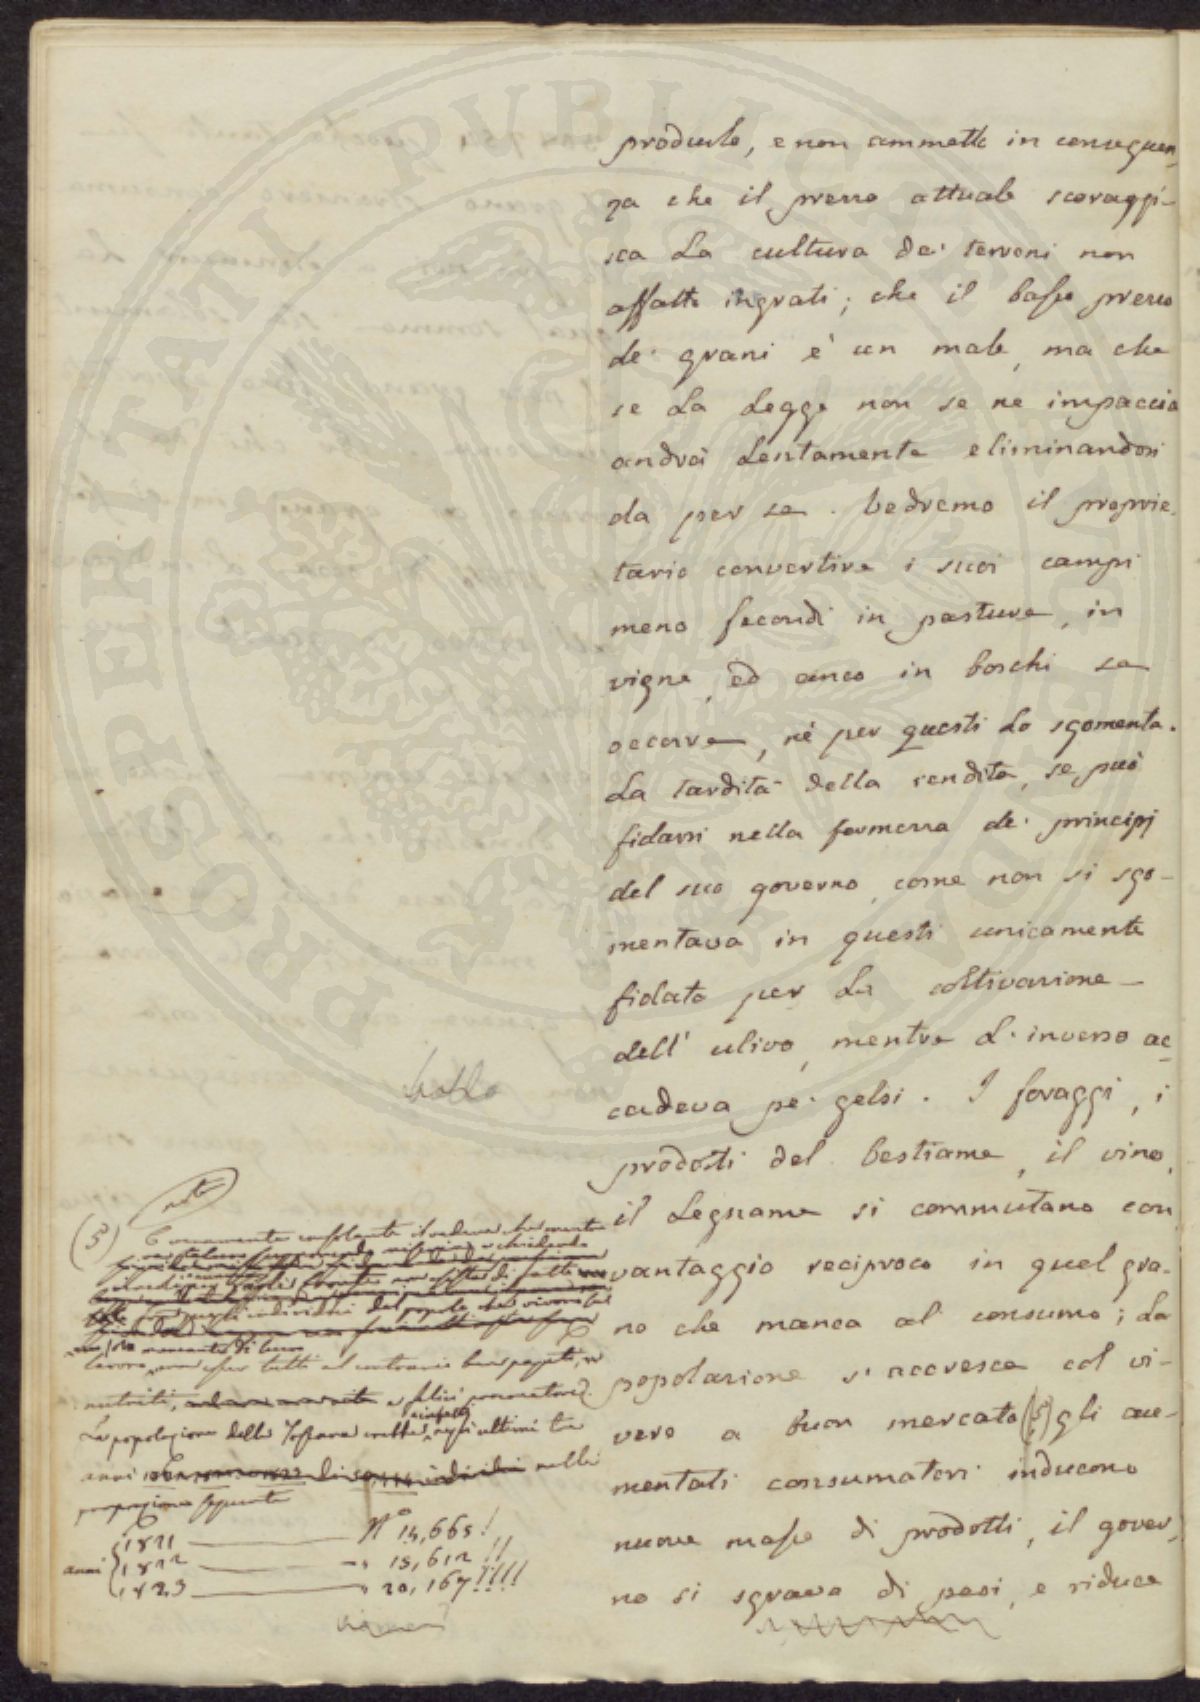 produrlo, e non ammette in conseguen-
za che il prezzo attuale scoraggi-
sca la cultura de' terreni non
affatto ingrati; che il basso prezzo
de' grani è un male, ma che
se la legge non se ne impaccia
andrà lentamente eliminandosi
da per se. Vedremo il proprie-
tario convertire i suoi campi
meno fecondi in pasture, in
vigne, ed anco in boschi se
occorre, nè per questi lo sgomenta
la tardità della rendita, se può
fidarsi nella fermezza de' principj
del suo governo, come non si sgo-
mentava in questi unicamente
fidato per la coltivazione
dell' ulivo, mentre l' inverso ac-
cadeva pe' gelsi. I foraggi, i
prodotti del bestiame, il vino,
il legname si commutano con
vantaggio reciproco in quel gra-
no che manca al consumo; la
popolazione s' accresce col vi-
vere a buon mercato (5) gli au-
mentati consumatori inducono
nuove masse di prodotti, il gover-
no si sgrava di pesi, e riduce
nota
(5) È veramente consolante il vedere che mentre
individui del popolo che vivono
lavoro, tutti al contrario ben pagati, e
nutriti, e felici
La popolazione della Toscana crebbe negli ultimi tre
anni nella
proporzione seguente
anni 1821 N.o 14,665!
1822 " 15,612!!
1823 " 20,167!!!!
PROSPERITATI PUBLICAE AUGENDAE